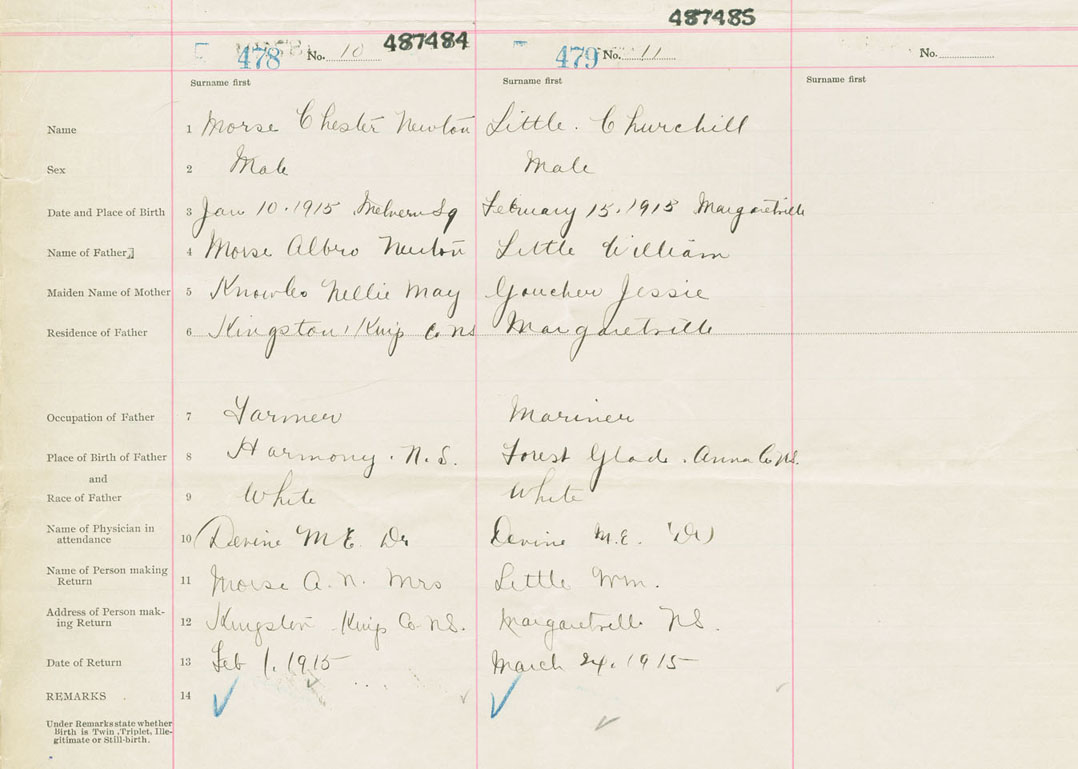 487485
478 No. 10 487484 479 No. 11 No.
Surname first Surname first Surname first
Name 1 Morse Chester Newton Little. Churchill
Sex 2 Male Male
Date and Place of Birth 3 Jan 10. 1915 Melvern Sq February 15. 1915 Margaretville
Name of Father 4 Morse Albro Newton Little William
Maiden Name of Mother 5 Knowles Nellie May Goucher Jessie
Residence of Father 6 Kingston, Kings Co NS Margaretville
Occupation of Father 7 Farmer Mariner
Place of Birth of Father 8 Harmony. N. S. Forest Glade. Anna Co NS.
and
Race of Father 9 White White
Name of Physician in
attendance 10 Devine M.E. Dr Devine M.E. (Dr)
Name of Person making
Return 11 Morse A. N. Mrs Little Wm.
Address of Person mak-
ing Return 12 Kingston Kings Co NS. Margaretville NS.
Date of Return 13 Feb 1, 1915 March 24, 1915
REMARKS 14
Under Remarks state whether
Birth is Twin, Triplet, Ille-
gitimate or Still-birth.